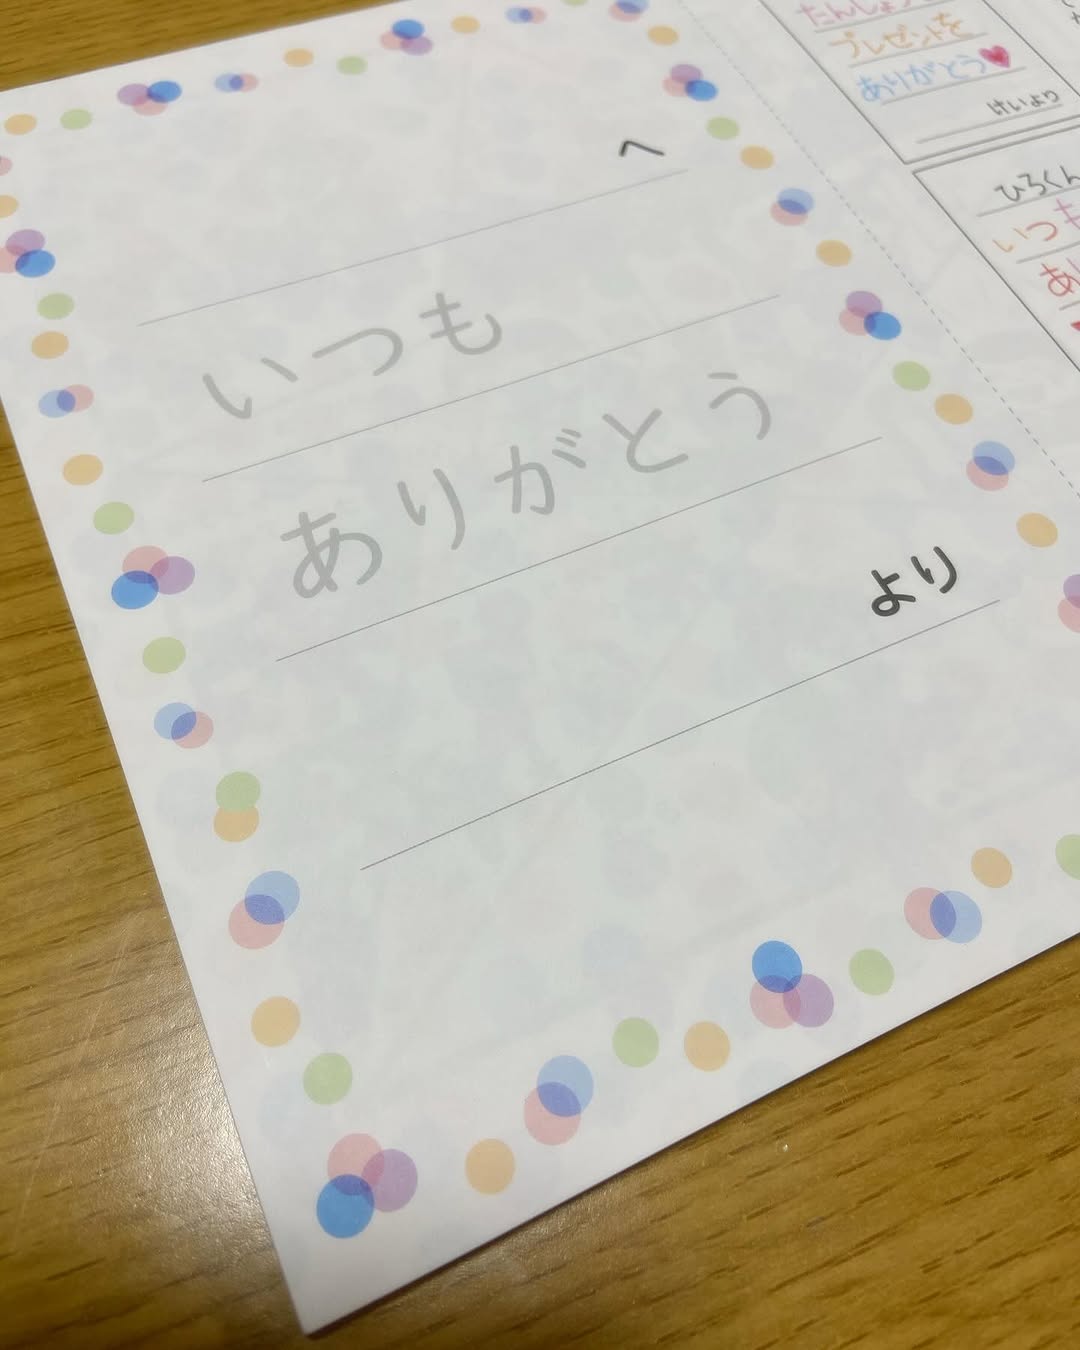 へ
いつも
ありがとう
より
プレゼントを
ありがとう
けいより
ひろくん
いつも